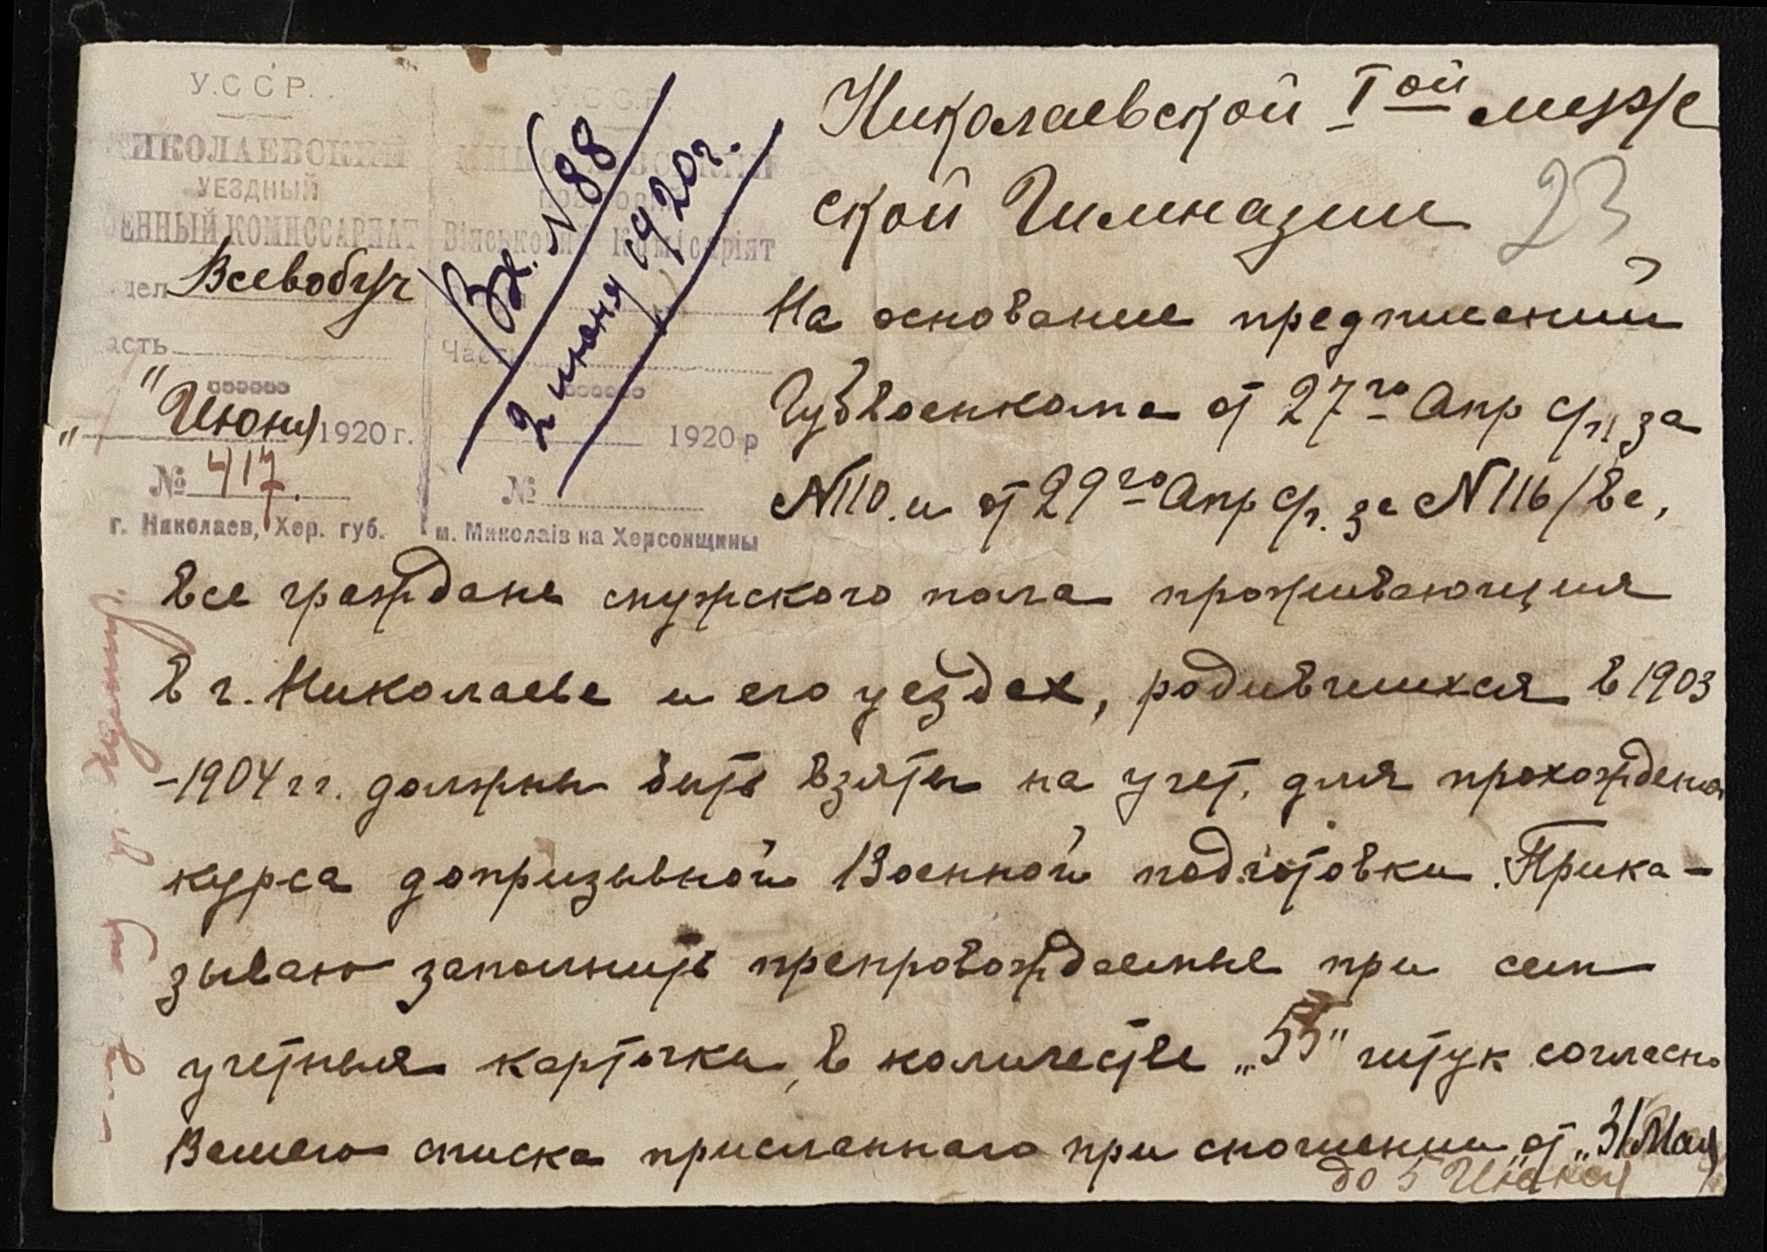 У.С.С.Р.
НИКОЛАЕВСКИЙ
УЕЗДНЫЙ
ВОЕННЫЙ КОМИССАРИАТ
Всевобуч
асть
" Июня 1920 г.
№ 417.
г. Николаев, Хер. губ.
У.С.С.Р.
Військовий Комісаріят
Част
1920 р
№
м. Миколаїв на Херсонщины
Вх. N 88
2 июня 1920 г.
Николаевской Iой мужс
ской Гимназии
23
На основание предписений
Губвоенкома от 27го Апр с/г. за
N110. и от 29го Апр с/г. за N116/Вс,
все граждане мужского пола проживающия
в г. Николаеве и его уездах, родившихся в 1903
-1904 г г. должны быть взяты на учет, для прохождения
курса допризывной Военной подготовки. Прика-
зываю заполнить препровождаемые при сем
учетныя карточки, в количестве „55" штук согласно
Вашего списка присланнаго при сношении от „31 Мая
до 5 Июня